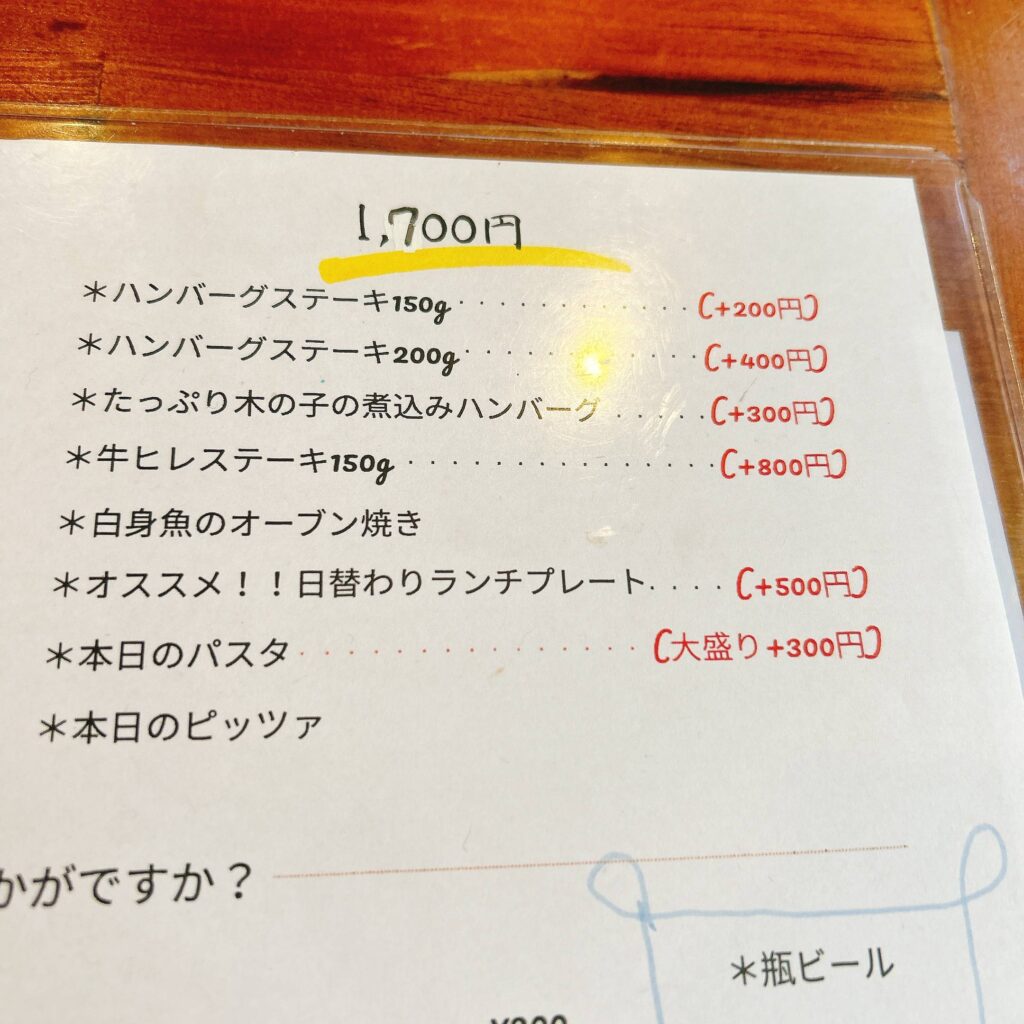 1,700円
＊ハンバーグステーキ150g･･････････････(+200円)
＊ハンバーグステーキ200g･･････････････(+400円)
＊たっぷり木の子の煮込みハンバーグ･････(+300円)
＊牛ヒレステーキ150g･･････････････････(+800円)
＊白身魚のオーブン焼き
＊オススメ！！日替わりランチプレート････(+500円)
＊本日のパスタ･･････････････････(大盛り+300円)
＊本日のピッツァ
かがですか？
＊瓶ビール